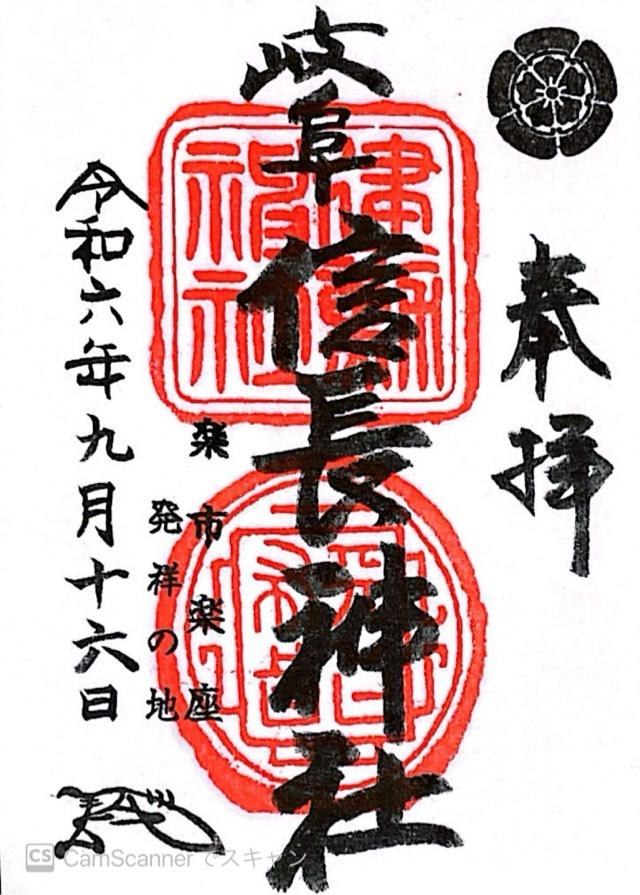 奉拝
岐阜信長神社
楽市楽座
発祥の地
令和六年九月十六日
CS CamScannerでスキャン